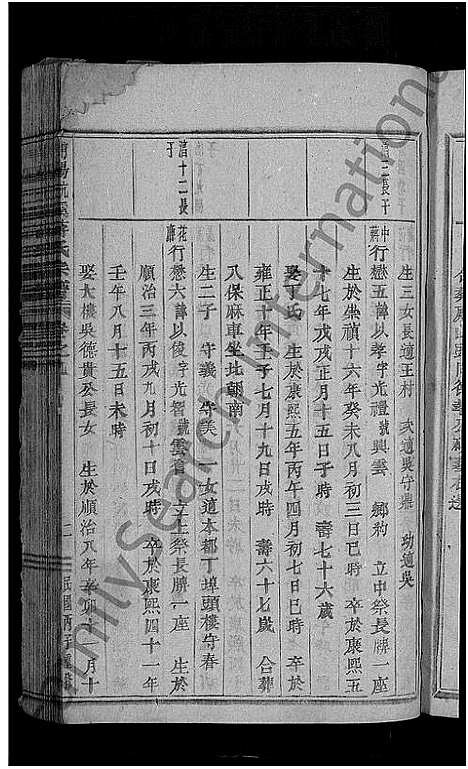 生三女長適王村 次適吳守鼎 幼適吳
清三長子
中蔣行懋五諱以孝字光禮號興雲 鄉約 立中祭長牌一座
生於崇禎十六年癸未八月初三日巳時 卒於康熙五
十七年戊戌正月十五日子時 壽七十六歲
娶丁氏 生於康熙五年丙午四月初七日巳時 卒於
雍正十年壬子七月十九日戌時 壽六十七歲 合葬
八保麻車坐北朝南
生二子 守義 守美 一女適本都丁埠頭樓守春
清十二長子
花廳行懋六諱以俊字光智號雲省 立上祭長牌一座 生於
順治三年丙戌九月初十日戌時 卒於康熙四十一年
壬午八月十五日未時
娶大樓吳德貴公長女 生於順治八年辛卯十二月十
民國丙子重修
FamilySearch International